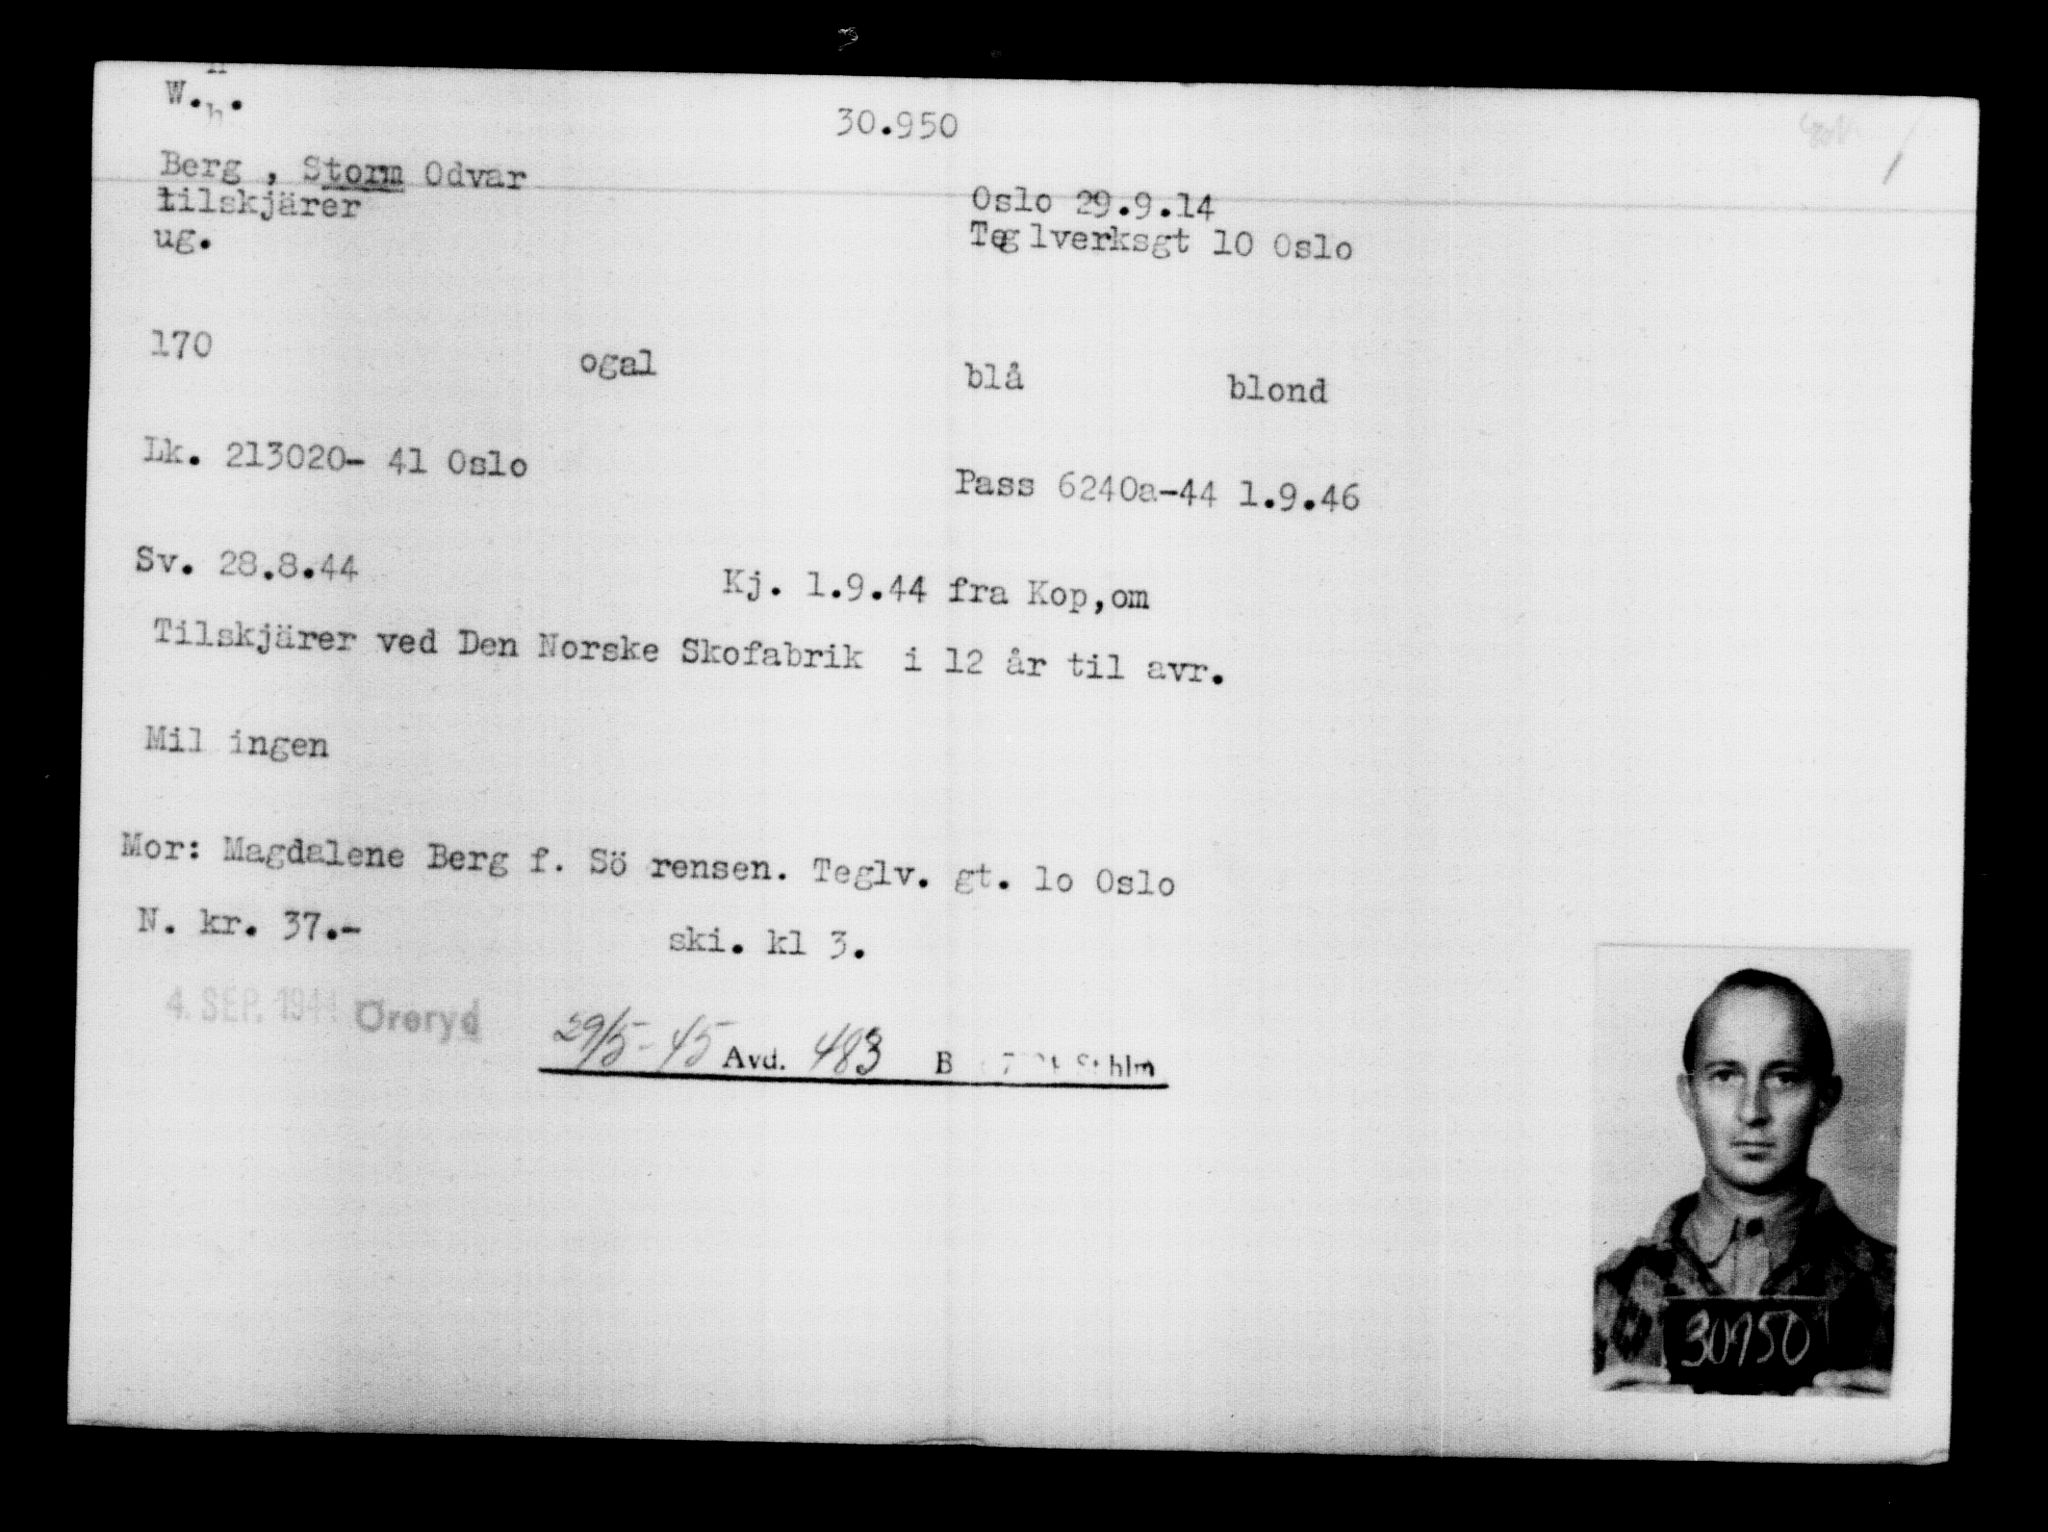 W.h.
30.950
Berg , Storm Odvar
tilskjärer
Oslo 29.9.14
ug.
Teglverksgt 10 Oslo
170
ogal
blå
blond
Lk. 213020- 41 Oslo
Pass 6240a-44 1.9.46
Sv. 28.8.44
Kj. 1.9.44 fra Kop,om
Tilskjärer ved Den Norske Skofabrik i 12 år til avr.
Mil ingen
Mor: Magdalene Berg f. Sö rensen. Teglv. gt. lo Oslo
N. kr. 37.-
ski. kl 3.
4. SEP. 1944 Öreryd
29/5-45 Avd. 483 B Sthlm
30950